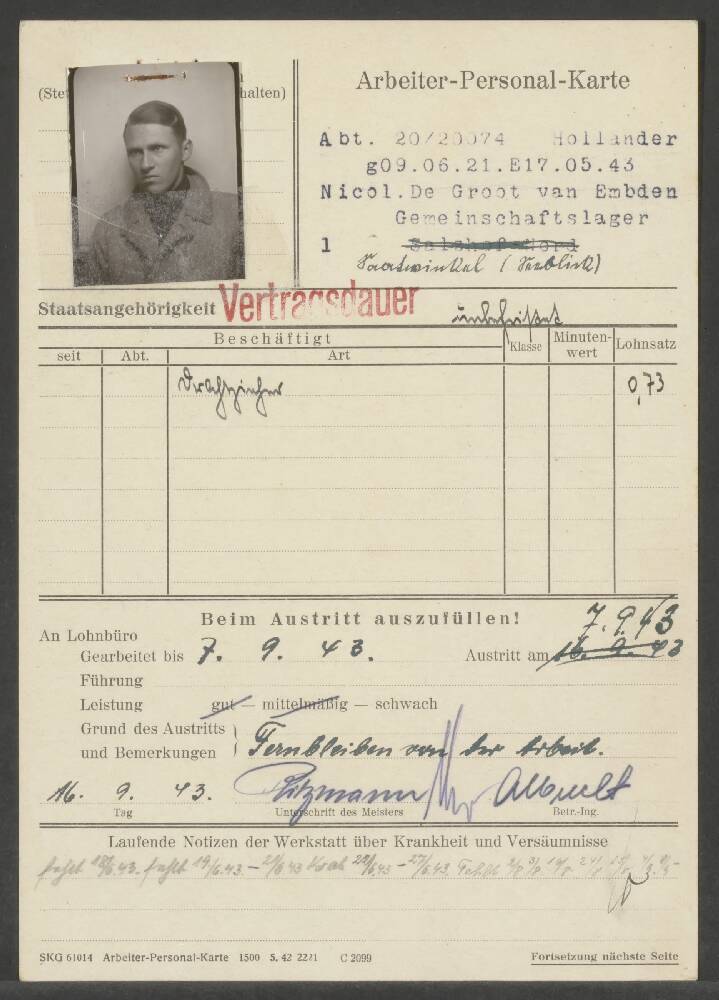 (Ste
halten)
Arbeiter-Personal-Karte
Abt. 20/20074 Hollander
g09.06.21.E17.05.43
Nicol.De Groot van Embden
Gemeinschaftslager
1 Salzhof-Nord
Saatwinkel (Seeblick)
Staatsangehörigkeit Vertragsdauer unbefristet
Beschäftigt
seit Abt. Art Klasse Minuten-wert Lohnsatz
Drahtzieher 0,73
Beim Austritt auszufüllen!
7.9.43
An Lohnbüro
Gearbeitet bis 7. 9. 43. Austritt am 16. 9. 43
Führung
Leistung gut — mittelmäßig — schwach
Grund des Austritts
und Bemerkungen } Fernbleiben von der Arbeit.
16. 9. 43. Albrecht
Tag Unterschrift des Meisters Betr.-Ing.
Laufende Notizen der Werkstatt über Krankheit und Versäumnisse
fehlt 18/6.43. fehlt 19/6.43 –
SKG 61014 Arbeiter-Personal-Karte 1500 5. 42 2221 C 2099 Fortsetzung nächste Seite